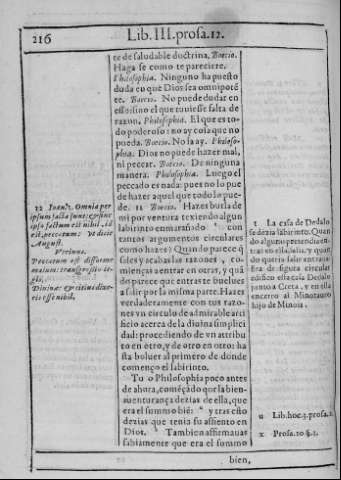 216
Lib. III. prosa. 12.
te de saludable doctrina. Boecio.
Haga se como te pareciere.
Philosophia. Ninguno ha puesto
duda en que Dios sea omnipotẽ
te. Boecio. No puede dudar en
esso sino el que tuuiesse falta de
razon. Philosophia. El que es to-
do poderoso: no ay cosa que no
pueda. Boecio. No la ay. Philoso-
phia. Dios no puede hazer mal,
ni peccar. Boecio. De ninguna
manera. Philosophia. Luego el
peccado es nada: pues no lo pue
de hazer aquel que todo lo pue-
de. 11 Boecio. Hazes burla de
mi por ventura texiendo algun
labirinto enmarañado con
tantos argumentos circulares
como hazes? Quando parece q̃
sales y acabas las razones, co-
mienças a entrar en otras, y quã
do parece que entraste buelues
a salir por la misma parte. Hazes
verdaderamente con tus razo-
nes vn circulo de admirable arti
ficio acerca de la diuina simplici
dad: procediendo de vn attribu
to en otro, y de otro en otro: ha
sta boluer al primero de donde
començo el labirinto.
Tu o Philosophia poco antes
de ahora, comẽçãdo por la bien-
auenturança dezias de ella, que
era el summo biẽ: u y tras esto
dezias que tenia su assiento en
Dios. x Tambien affirmauas
sabiamente que era el summo
bien,
12 Ioan. 1. Omnia per
ipsum facta sunt: & sine
ipso factum est nihil, id
est, peccatum: Vt dicit
August.
Peccatum est
Diuinæ
esse nihil.
t La casa de Dedalo
se dezia labirinto. Quan
do alguno pretendia en-
trar en ella, salia, y quan
do queria salir entraua.
Era de figura circular
edificio esta casa Dedalo
junto a Creta, y en ella
encerro al Minotauro
hijo de Minois.
u Lib. hoc. 3. prosa. 2.
x Prosa. 10. §. 1.